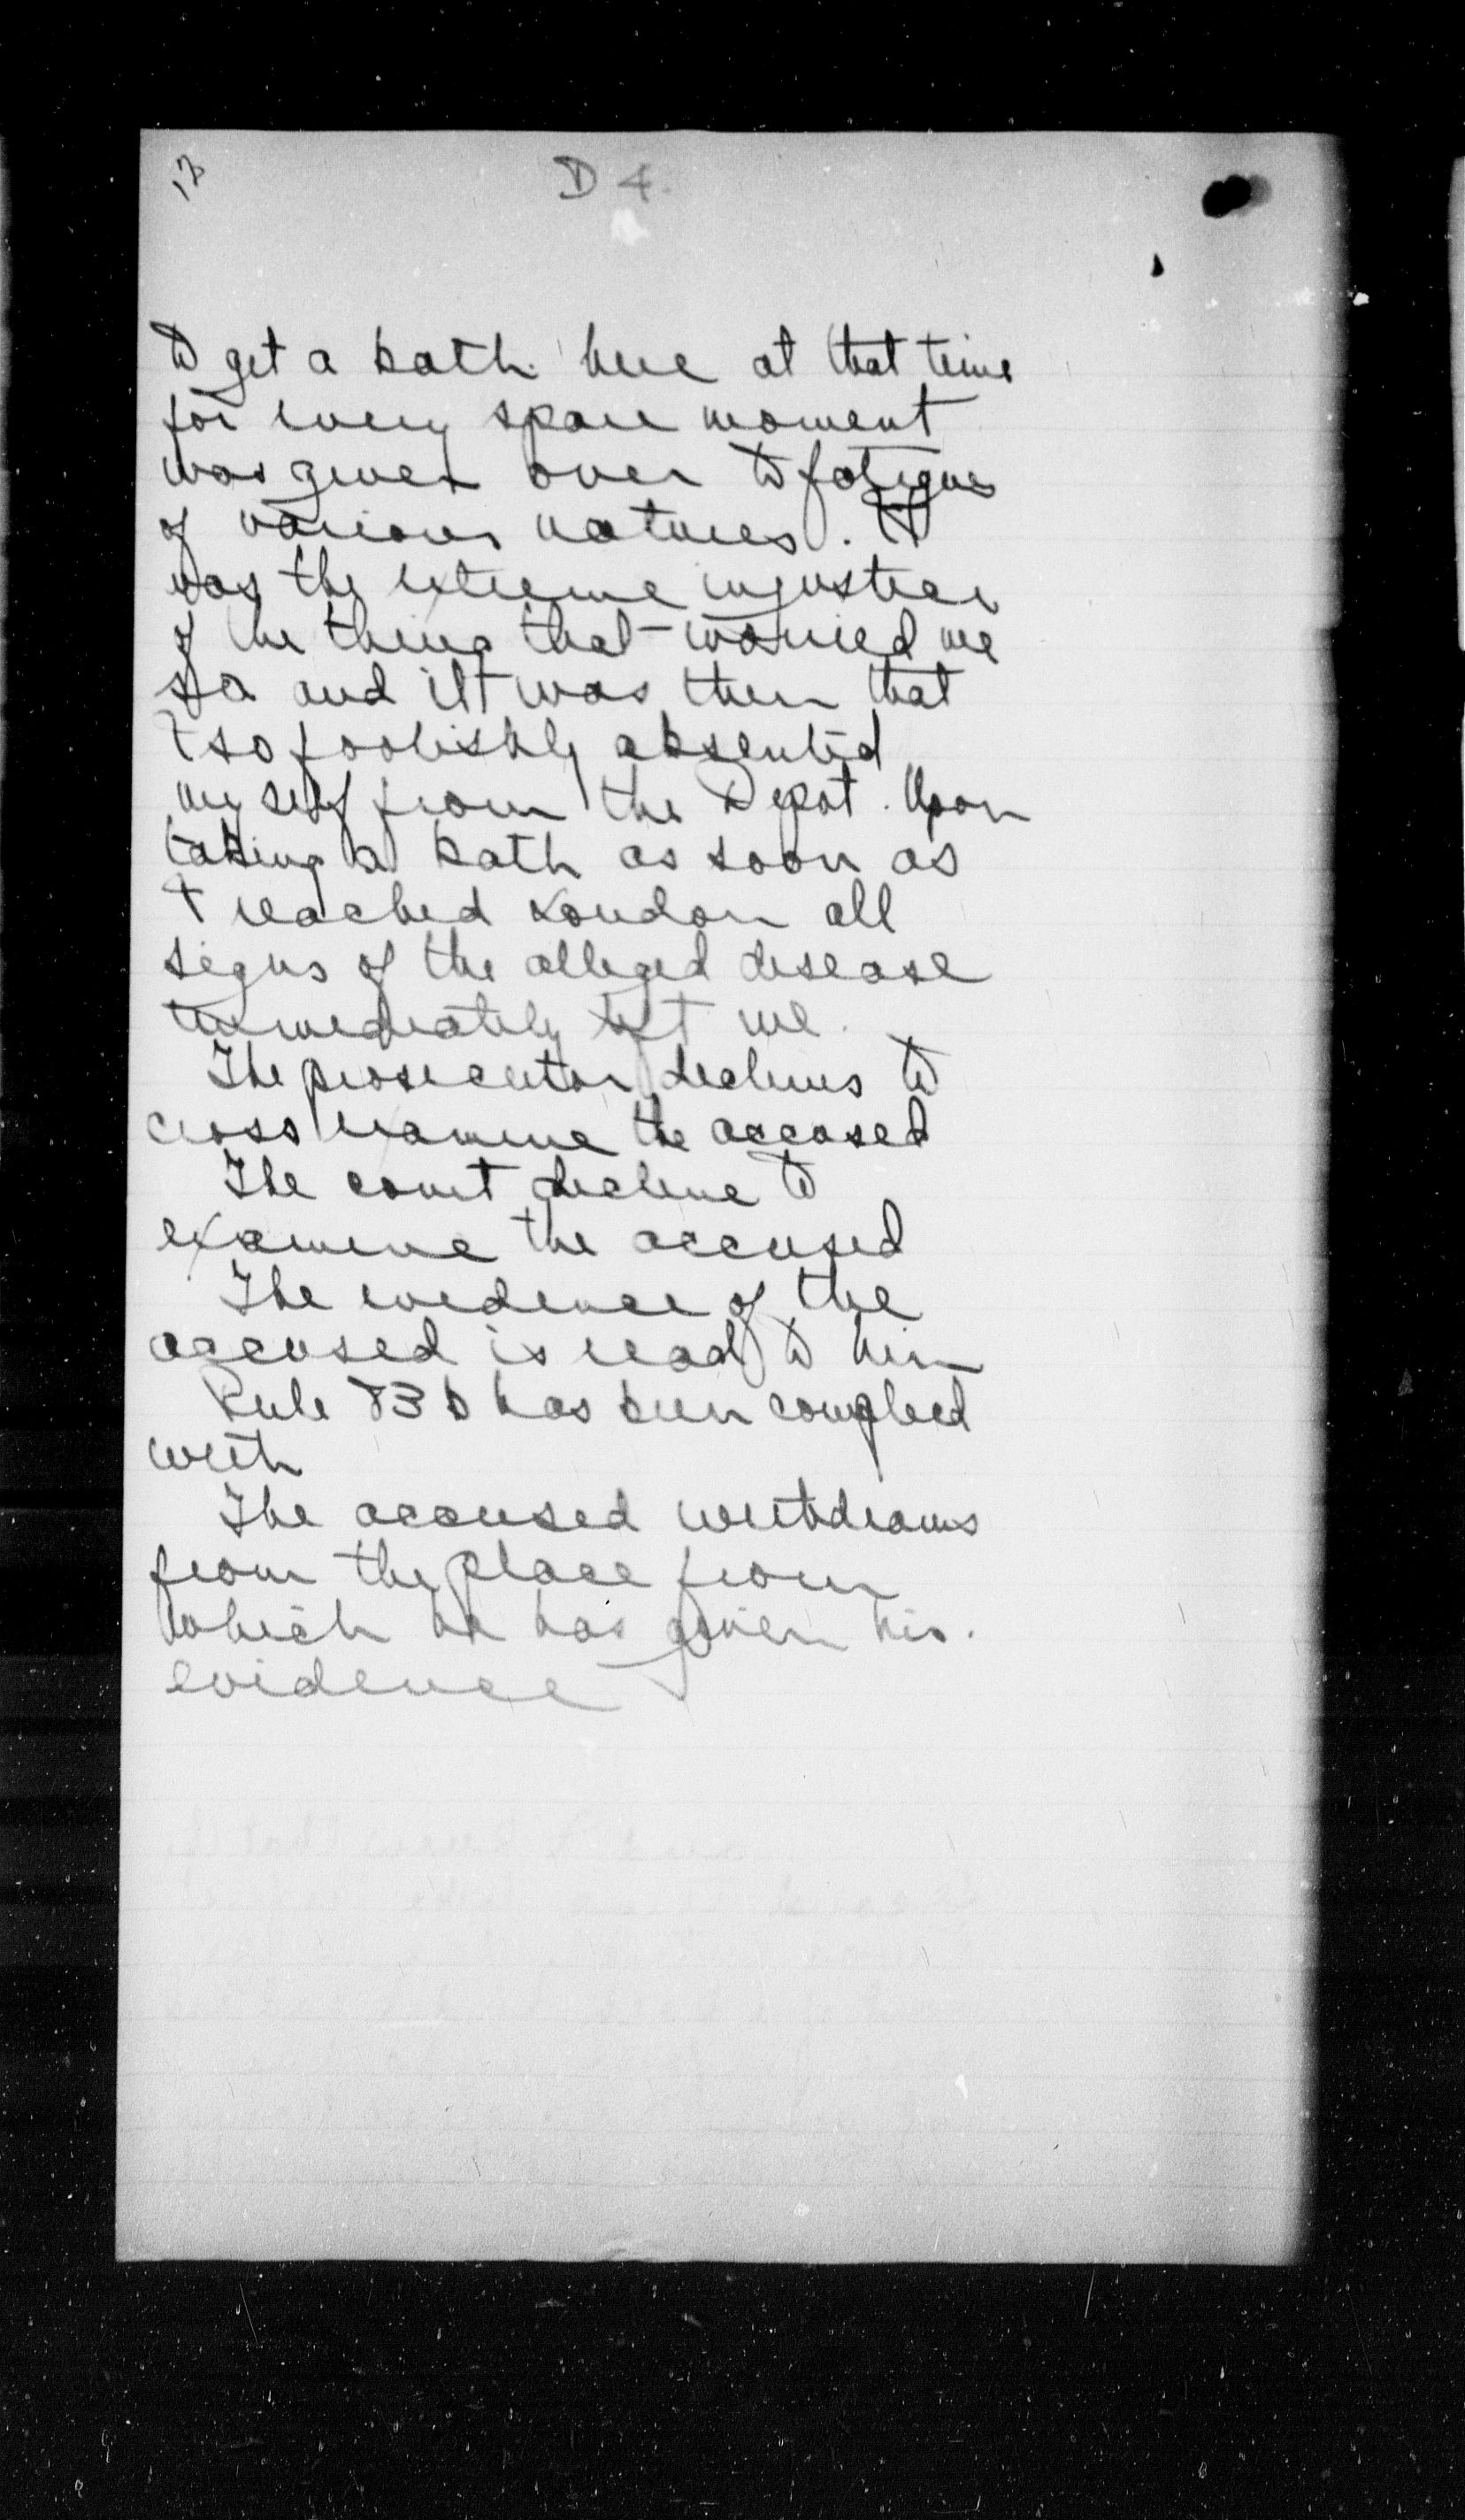 D 4.
to get a bath here at that time
for every spare moment
was given over to fatigues
of various natures. It
was the extreme injustice
of the thing that worried me
so and it was then that
I so foolishly absented
myself from the Depot. Upon
taking a bath as soon as
I reached London all
signs of the alleged disease
immediately left me.
The prosecutor declines to
cross examine the accused
The court decline to
examine the accused
The evidence of the
accused is read to him
Rule 83 b has been complied
with
The accused withdraws
from the place from
which he has given his.
evidence